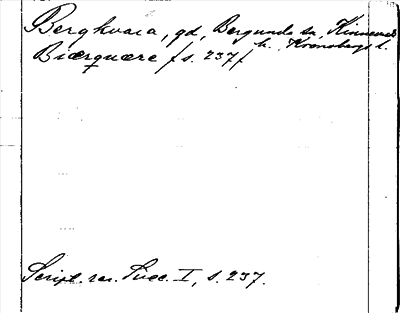 Bergkvara, gd, Bergunda sn, Kinnevalds
h. Kronobergs l.
Biærquære /s. 237/
Script. rer. Suec. I, s. 237.